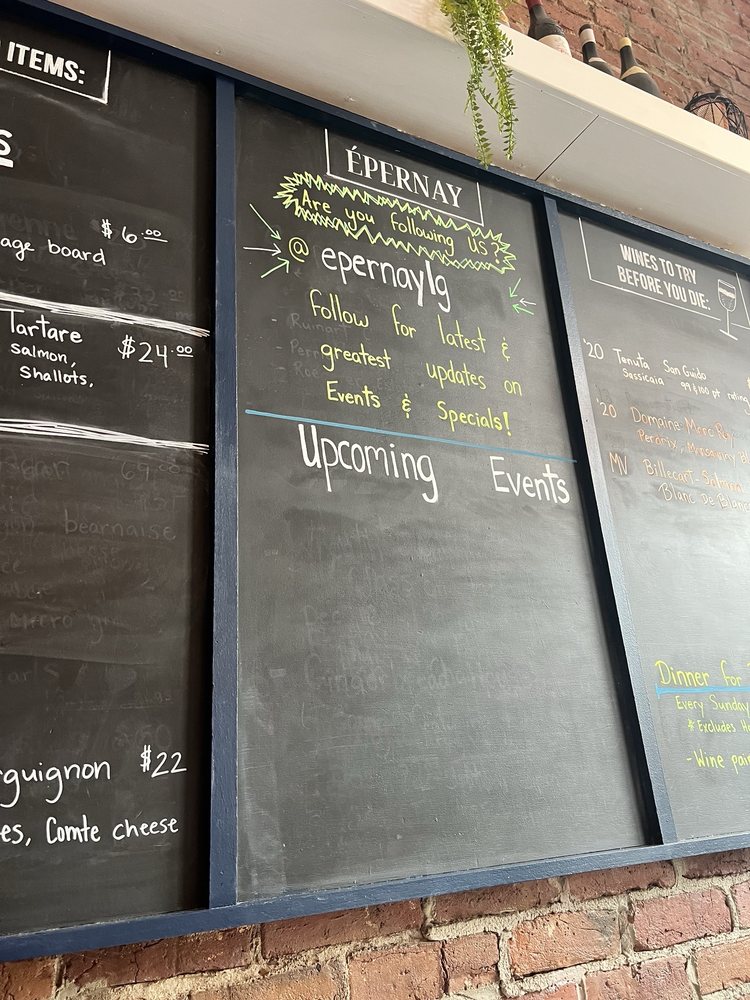 ITEMS:
S
$6.00
age board
Tartare
$24.00
Salmon,
Shallots,
bearnaise
rguignon $22
es, Comte cheese
ÉPERNAY
Are you following us?
@ epernaylg
Follow for latest &
greatest updates on
Events & Specials!
Upcoming Events
WINES TO TRY
BEFORE YOU DIE:
'20 Tenuta San Guido
Sassicaia 99 & 100 pt rating
'20 Domaine Marc Roy
MV Billecart-Salmon
Blanc De Blanc
Dinner for
Every Sunday
*Excludes
-Wine pair